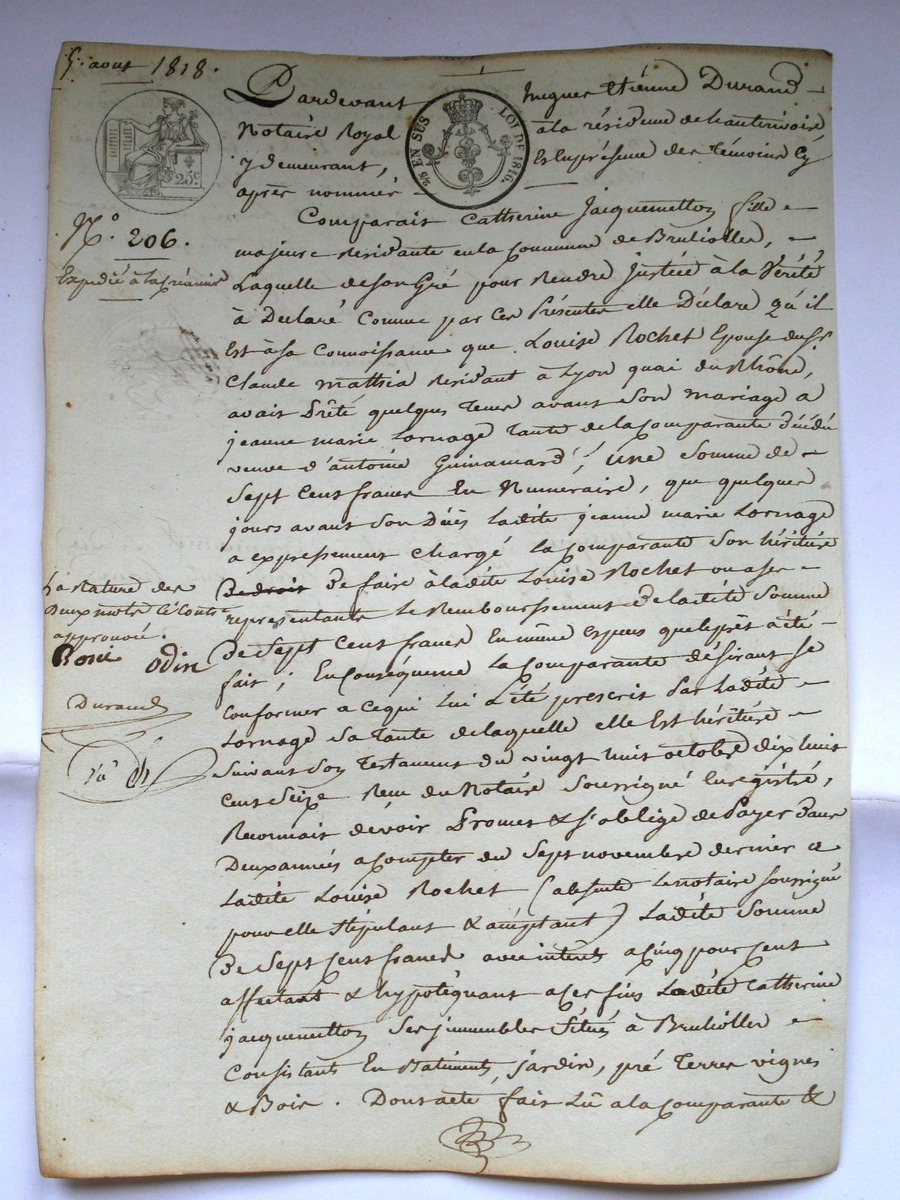 5. aout 1818.
25c.
25 EN SUS LOI DE 1816.
Nº. 206.
Expédié à la Créancière
Pardevant hugues Etiénne Durand
Notaire Royal à la résidence de hauterivoire
y demeurant, Et en présence des témoins Cy
après nommés
Comparait Catherine Jacquemetton fille
majeure Residante en la Commune de Brulliolles,
Laquelle de son Gré pour Rendre justice à la Vérité
à Déclaré Comme par Ces Présentes elle Déclare qu'il
Est à sa Connoissance que Louise Rochet Epouse du Sr
Claude mathia Residant à Lyon quai du Rhône,
avait Prêté quelques tems avant son mariage a
jeanne marie Lornage tante de la Comparante
veuve d'antoine Guinamard, une Somme de
Sept Cent francs En Numeraire, que quelques
jours avant son Décès Ladite jeanne marie Lornage
a expressement chargé la Comparante son héritière
De droit De faire à ladite Louise Rochet ou a ses
representants Le Remboursement De ladite Somme
De Sept Cent francs En même espèces que le prêt a été
fait; En Conséquence la Comparante désirant se
Conformer a Ce qui Lui a été prescrit Par Ladite
Lornage Sa tante de laquelle elle Est héritière
Suivant Son Testament du vingt huit octobre dix huit
Cent Seize Reçu du Notaire Soussigné Enregistré,
Reconnait devoir Promet & s'oblige de Payer Dans
Deux années a Compter du Sept novembre dernier a
Ladite Louise Rochet (absente Le notaire soussigné
pour elle stipulant & acceptant) Ladite Somme
De Sept Cent francs avec intérêts a Cinq pour Cent
affectant & hypotéquant a Ces fins Ladite Catherine
jacquemetton Ses immeubles Situés à Brullioller
Consistants En Batiments, jardin, pré Terres vignes
& Bois. Dont acte fait Lû a la Comparante &
La Rature des
Deux mots Ci Contre
approuvé.
Boni Odin
Durand